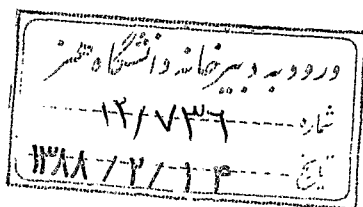 ورود به دبیرخانه دانشگاه هنر
شماره ۱۲/۷۳۶
تاریخ ۱۳۸۸/۲/۱۴